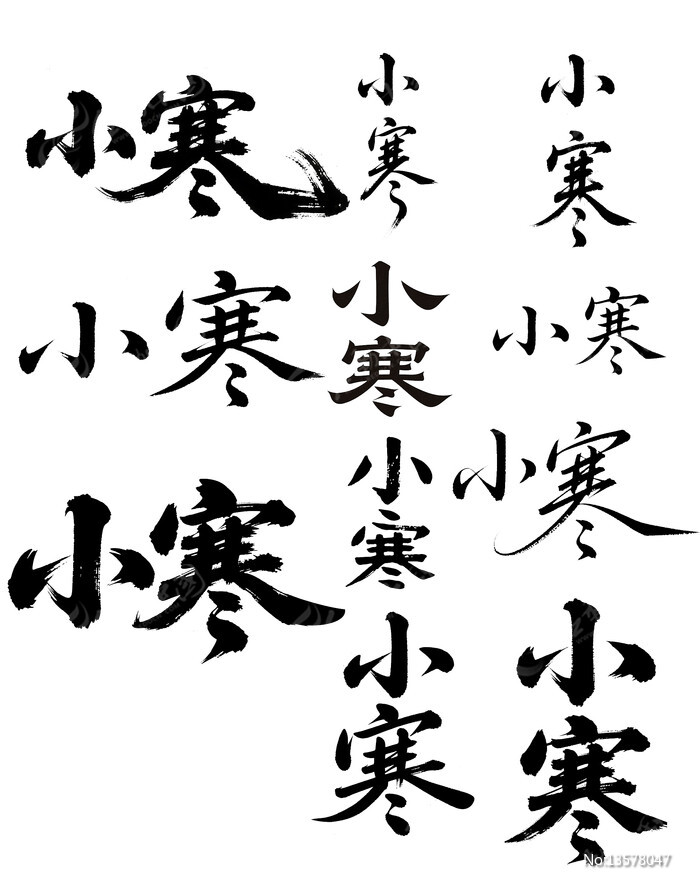 小寒
小
寒
小
寒
小寒
小
寒
小寒
小
寒
小寒
小寒
小
寒
小
寒
No:13578047